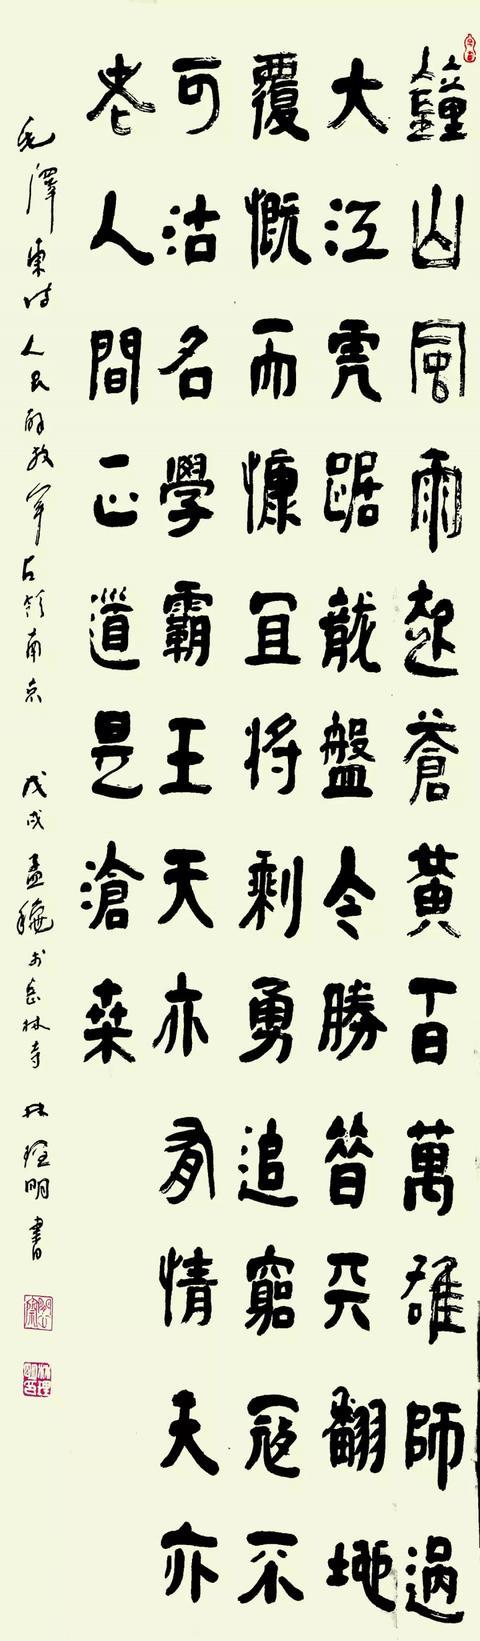 鐘山風雨起蒼黃百萬雄師過
大江虎踞龍盤今勝昔天翻地
覆慨而慷宜將剩勇追窮寇不
可沽名學霸王天亦有情天亦
老人間正道是滄桑
毛澤東詩人民解放軍占領南京 戊戌孟穐於岳林寺 林理明書